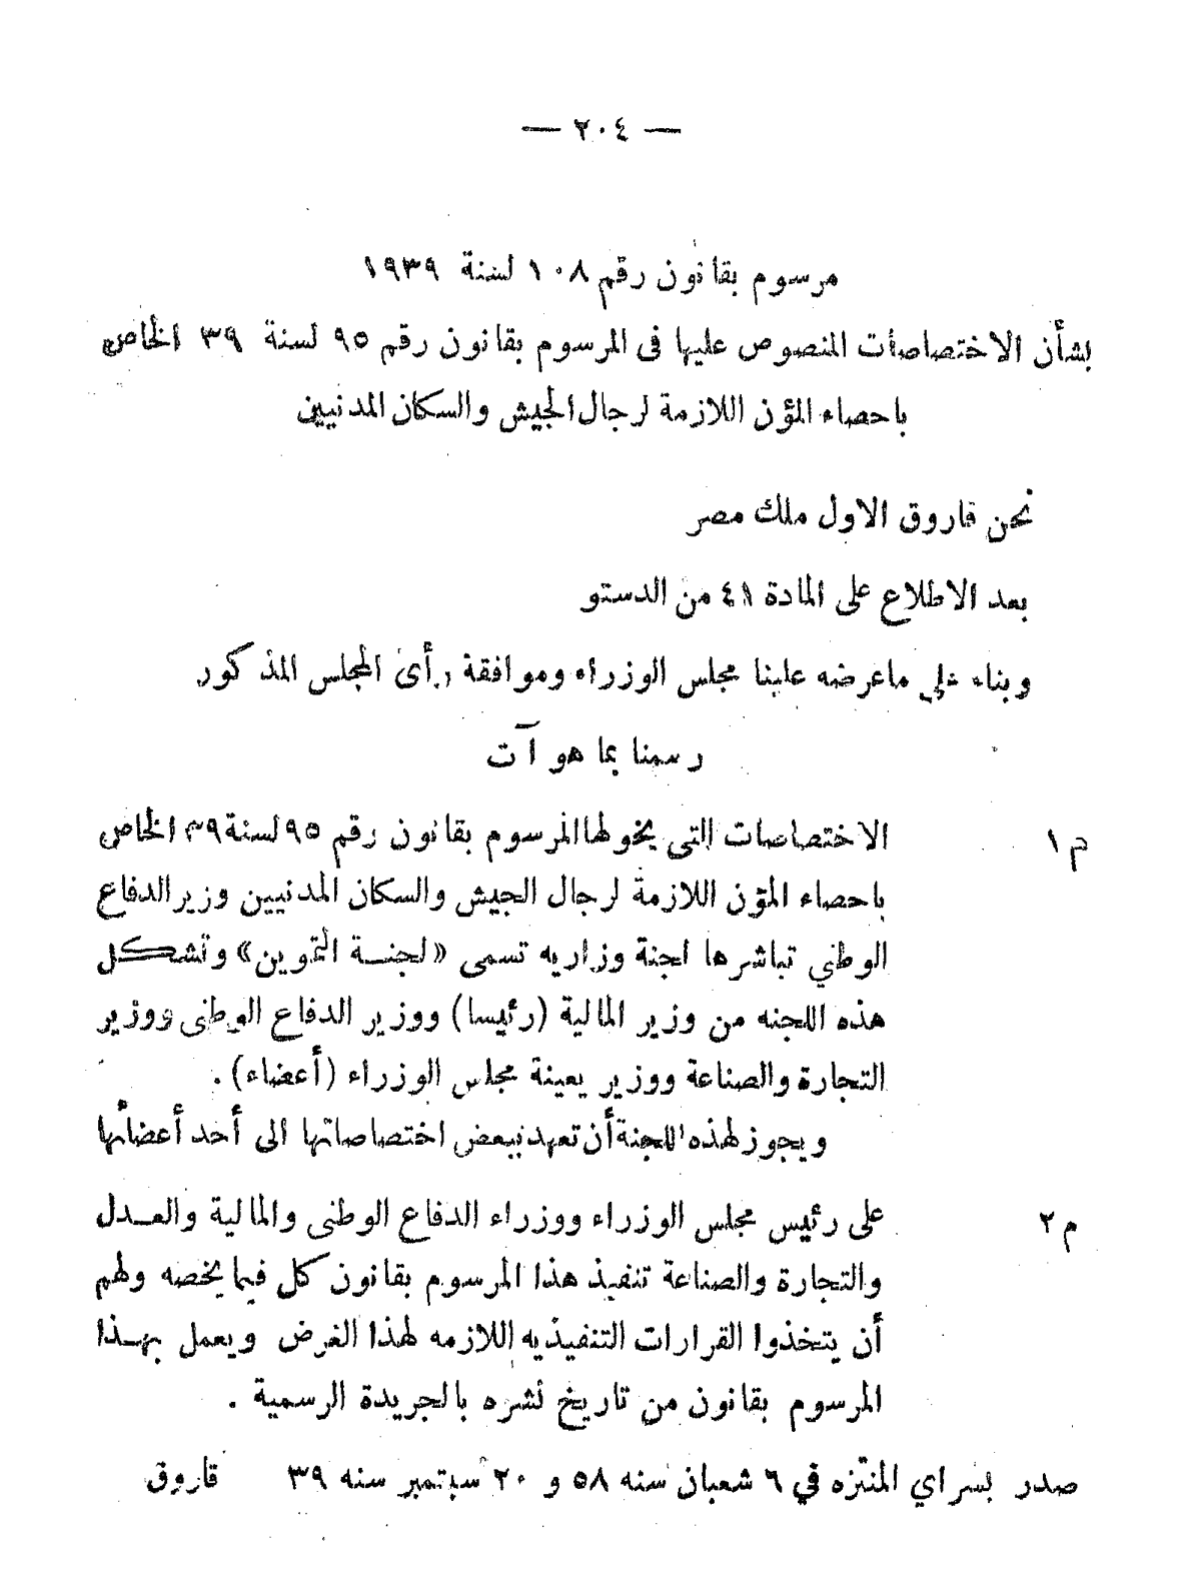 — ٢٠٤ —
مرسوم بقانون رقم ١٠٨ لسنة ١٩٣٩
بشأن الاختصاصات المنصوص عليها فى المرسوم بقانون رقم ٩٥ لسنة ٣٩ الخاص
باحصاء المؤن اللازمة لرجال الجيش والسكان المدنيين
نحن فاروق الاول ملك مصر
بعد الاطلاع على المادة ٤١ من الدستو
وبناء على ماعرضه علينا مجلس الوزراء وموافقة رأى المجلس المذكور
رسمنا بما هو آت
م ١ الاختصاصات التى يخولها المرسوم بقانون رقم ٩٥ لسنة ٣٩ الخاص
باحصاء المؤن اللازمة لرجال الجيش والسكان المدنيين وزير الدفاع
الوطني تباشرها لجنة وزاريه تسمى «لجنة التموين» وتشكل
هذه اللجنه من وزير المالية (رئيسا) ووزير الدفاع الوطنى ووزير
التجارة والصناعة ووزير يعينة مجلس الوزراء (أعضاء) .
ويجوز لهذه اللجنة أن تعهد ببعض اختصاصاتها الى أحد أعضائها
م ٢ على رئيس مجلس الوزراء ووزراء الدفاع الوطنى والمالية والعدل
والتجارة والصناعة تنفيذ هذا المرسوم بقانون كل فيما يخصه ولهم
أن يتخذوا القرارات التنفيذيه اللازمه لهذا الغرض ويعمل بهذا
المرسوم بقانون من تاريخ نشره بالجريدة الرسمية .
صدر بسراي المنتزه في ٦ شعبان سنه ٥٨ و ٢٠ سبتمبر سنه ٣٩ فاروق